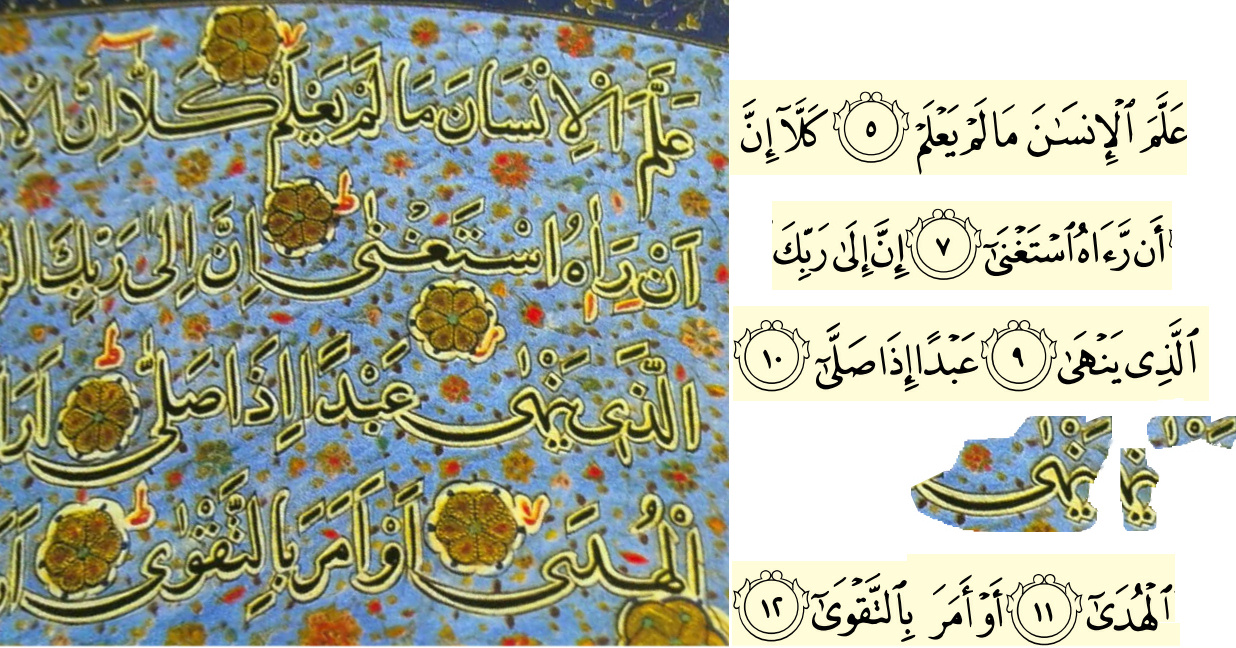 عَلَّمَ الْاِنْسَانَ مَا لَمْ يَعْلَمْ كَلَّا اِنَّ الْاِ
اَنْ رَاٰهُ اسْتَغْنٰى اِنَّ اِلٰى رَبِّكَ
الَّذٖى يَنْهٰى عَبْدًا اِذَا صَلّٰى اَرَا
الْهُدٰى اَوْ اَمَرَ بِالتَّقْوٰى
عَلَّمَ ٱلْإِنسَٰنَ مَا لَمْ يَعْلَمْ ٥ كَلَّآ إِنَّ
أَن رَّءَاهُ ٱسْتَغْنَىٰٓ ٧ إِنَّ إِلَىٰ رَبِّكَ
ٱلَّذِى يَنْهَىٰ ٩ عَبْدًا إِذَا صَلَّىٰٓ ١٠
يَنْهٰى
ٱلْهُدَىٰٓ ١١ أَوْ أَمَرَ بِٱلتَّقْوَىٰٓ ١٢